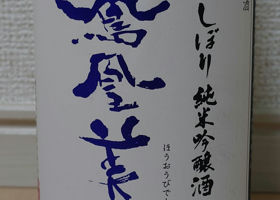 酒
しぼり 純米吟醸酒
ほうおうびで
鳳凰美